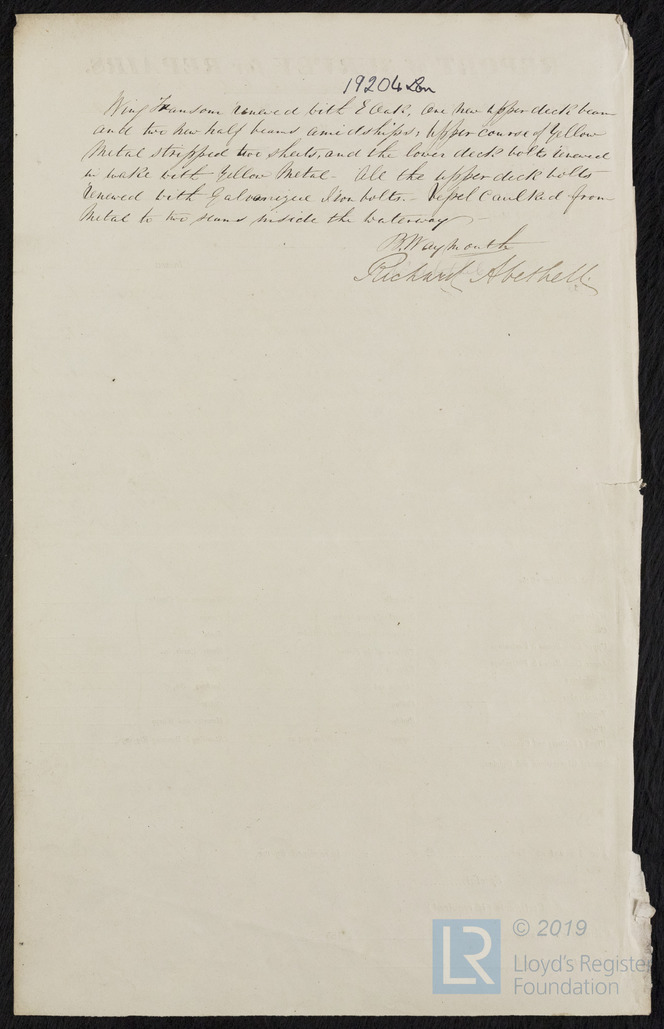 19204 Lon
Wing Transom renewed with E Oak, One new upper deck beam
and two new half beams amidships, upper course of Yellow
Metal stripped two sheets, and the lower deck bolts renewed
in wake with Yellow Metal - All the upper deck bolts
renewed with Galvanized Iron bolts. - Vessel Caulked from
Metal to two seams inside the waterway -
B. Waymouth
Richard Abethell
© 2019
LR
Lloyd's Register
Foundation